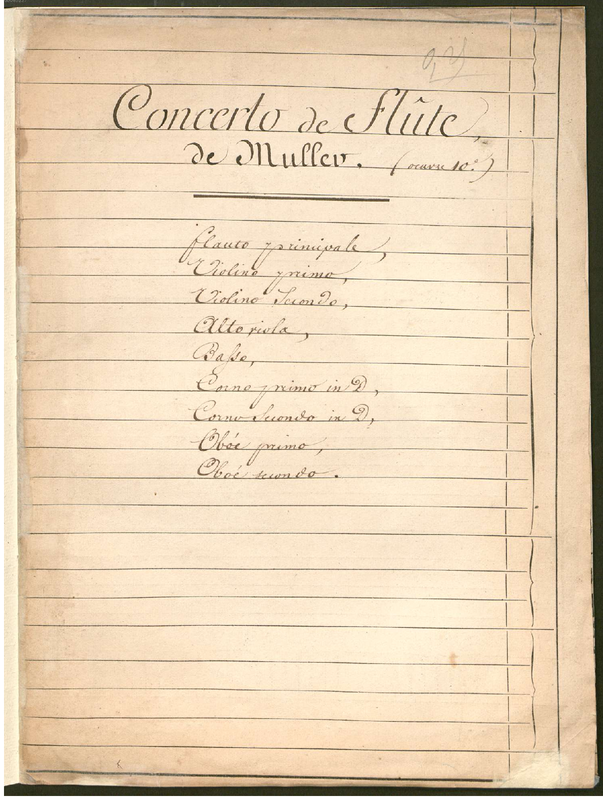 Concerto de Flûte,
de Muller. (œuvre 10.e)
flauto principale,
Violino primo,
Violino Secondo,
Alto viola,
Basso,
Corno primo in D,
Corno Secondo in D,
Oboé primo,
Oboé secondo.